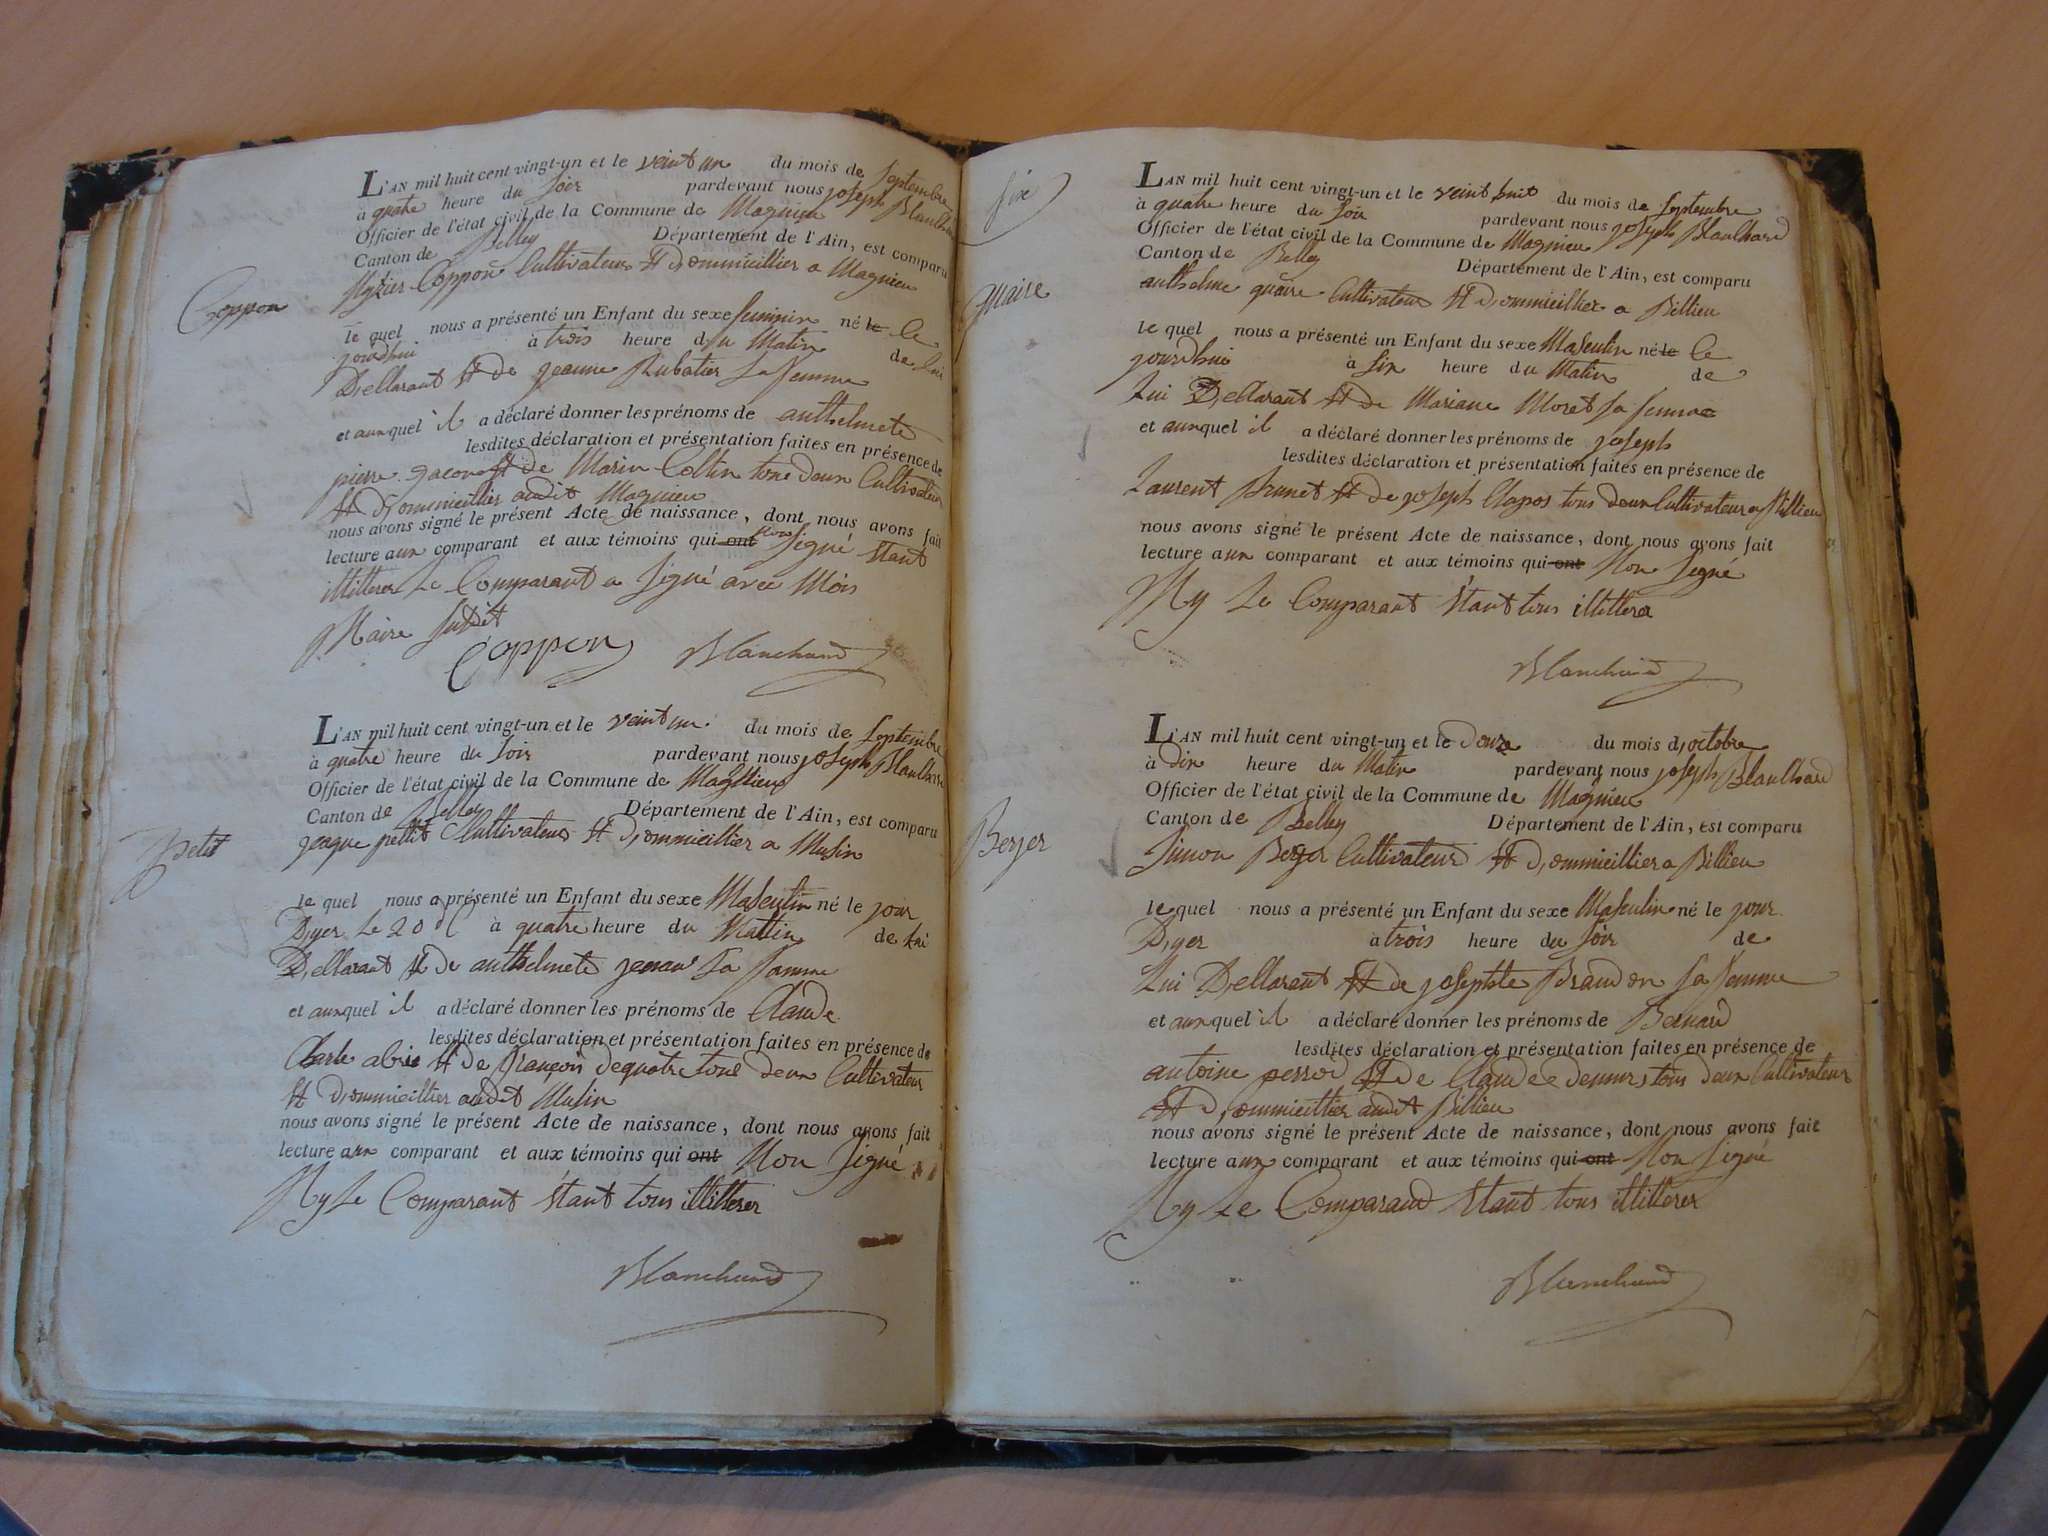 L'AN mil huit cent vingt-un et le veint un du mois de Septembre
à quatre heure du Soir pardevant nous joseph Blanchard
Officier de l'état civil de la Commune de Magnieu
Canton de Belley Département de l'Ain, est comparu
Coppon Cultivateur Et Dommicillier a Magnieu
Coppon
le quel nous a présenté un Enfant du sexe feminin né le Ce
jourdhui à trois heure du Matin de Lui
Dellarant Et De jeanne Rubatier Sa femme
et auxquel il a déclaré donner les prénoms de anthelmete
lesdites déclaration et présentation faites en présence de
pierre Et de Marin Collin tous deux Cultivateur
Et Dommicillier audit Magnieu
nous avons signé le présent Acte de naissance, dont nous avons fait
lecture aux comparant et aux témoins qui ont Signé Etant
illitterer Le Comparant a Signé avec Mois
Maire Susdit
Coppon Blanchard
L'AN mil huit cent vingt-un et le veint un du mois de Septembre
à quatre heure du Soir pardevant nous joseph Blanchard
Officier de l'état civil de la Commune de Magnieu
Canton de Belley Département de l'Ain, est comparu
jeaque petit Cultivateur Et Dommicillier a Musin
Petit
le quel nous a présenté un Enfant du sexe Masculin né le jour
Dyer Le 20 à quatre heure du Mattin de Lui
Dellarant Et De anthelmete Sa famme
et auxquel il a déclaré donner les prénoms de Claude
lesdites déclaration et présentation faites en présence de
Charle Et De françois dequatre tous deux Cultivateur
Et Dommicillier audit Musin
nous avons signé le présent Acte de naissance, dont nous avons fait
lecture aux comparant et aux témoins qui ont Non Signé
Ny Le Comparant Etant tous illitterer
Blanchard
six
L'AN mil huit cent vingt-un et le veint huit du mois de Septembre
à quatre heure du Soir pardevant nous joseph Blanchard
Officier de l'état civil de la Commune de Magnieu
Canton de Belley Département de l'Ain, est comparu
anthelme Cultivateur Et Dommicillier a Billieu
le quel nous a présenté un Enfant du sexe Masculin né le Ce
jourdhui à Six heure du Matin de
Lui Dellarant Et De Mariane Moret Sa femme
et auxquel il a déclaré donner les prénoms de joseph
lesdites déclaration et présentation faites en présence de
Laurent Brunet Et De joseph Clapos tous deux Cultivateur a Billieu
nous avons signé le présent Acte de naissance, dont nous avons fait
lecture aux comparant et aux témoins qui ont Non Signé
Ny Le Comparant Etant tous illitterer
Blanchard
L'AN mil huit cent vingt-un et le Douze du mois d'octobre
à Dix heure du Matin pardevant nous joseph Blanchard
Officier de l'état civil de la Commune de Magnieu
Canton de Belley Département de l'Ain, est comparu
Simon Berger Cultivateur Et Dommicillier a Billieu
Berger
le quel nous a présenté un Enfant du sexe Masculin né le jour
Dyer à trois heure du Soir de
Lui Dellarant Et De josephte Brandon Sa femme
et auxquel il a déclaré donner les prénoms de Bernard
lesdites déclaration et présentation faites en présence de
antoine perrod Et De Claude demurs tous deux Cultivateur
Et Dommicillier audit Billieu
nous avons signé le présent Acte de naissance, dont nous avons fait
lecture aux comparant et aux témoins qui ont Non Signé
Ny Le Comparand Etant tous illitterer
Blanchard